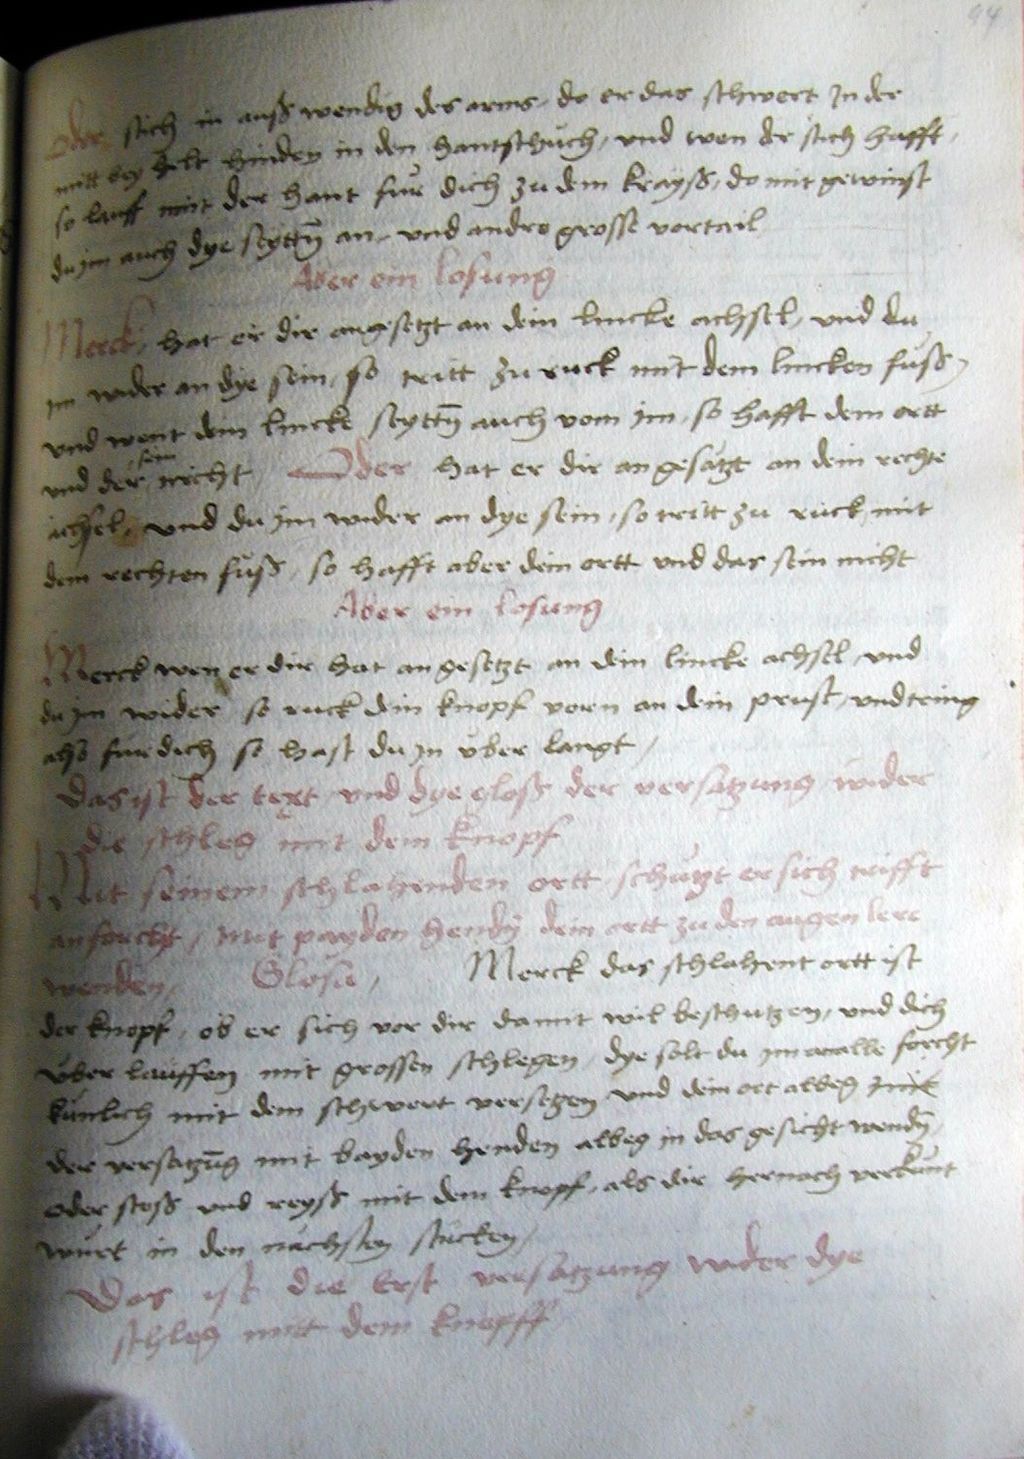 94
Oder stich in ausß wendig des arms, do er das schwert In der
mitt bey helt hinden in den hantschuch, und wen der stich hafft,
so lauff mit der hant für dich zu dem krayß, do mit gewinst
du jm auch dye seyttn̄ an, und andre grosse vortail
Aber ein losung
Merck, hat er dir angesetzt an dein lincke achsel, und du
im wider an dye sein, so tritt zu ruck mit dem lincken fuß,
und went dein lincke seyttn̄ auch vom jm, so hafft dein ortt
und der sein nicht Oder hat er dir angesatzt an dein rechte
achsel, und du jm wider an dye sein, so tritt zu ruck mit
dem rechten fuß, so hafft aber dein ortt und das sein nicht
Aber ein losung
Merck wen er dir hat angesetzt an dein lincke achsel, und
du jm wider so ruck dein knopf vorn an dein prust, und tring
also für dich so hast du jn über langt,
Das ist der text, und dye gloß der versatzung wider
die schleg mit dem knopf
Mit seinem schlahenden ortt, schützt er sich trifft
an forcht, mit payden hendn̄ dein ortt zu den augen lere
wenden, Glosa, Merck das schlahent ortt ist
der knopf, ob er sich vor dir damit wil beschutzen, und dich
über lauffen mit grossen schlegen, dye solt du jm an alle forcht
künlich mit dem schwert versetzen und dein ort albeg mit
der versatzūg mit bayden henden albeg in das gesicht wendn̄,
oder stoß und reyß mit dem knopf, als dir hernach verkünt
würt in den nachsten stucken,
Das ist die Erst versatzung wider dye
schleg mitt dem knopff